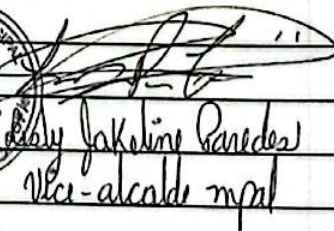 Jakeline Paredes
Vice-alcalde mpal